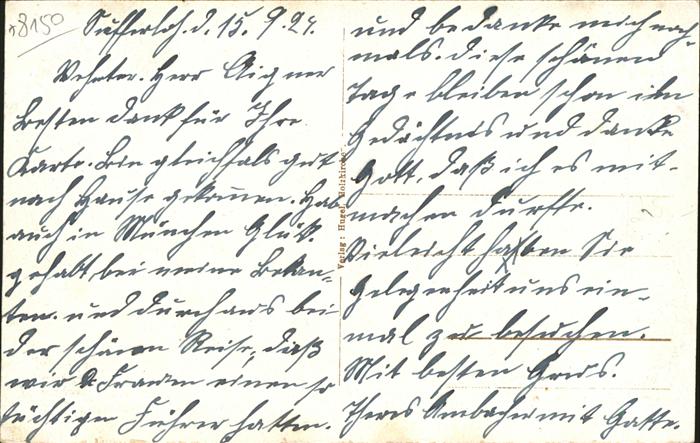 8150
Sufferloh d. 15. 9. 24.
Vehrter. Herr Aigner
Besten Dank für Ihre
Karte. Bin gleichfals gut
nach Hause gekomen. Hab
auch in München Glük.
gehalt, bei meine Bekan-
ten. und durchaus bei
der schönen Reise, daß
wir Frauen einen so
tüchtigen Führer hatten.
und bedanke mich noch
mals. diese schönen
Tage bleiben schon im
Gedächtnis und danke
Gott, daß ich es mit-
machen durfte.
Vieleicht haben Sie
Gelegenheit uns ein-
mal zu besuchen.
Mit besten Grus.
Theres Ambacher mit Gatte.
Verlag: Hugel, Holzkirchen